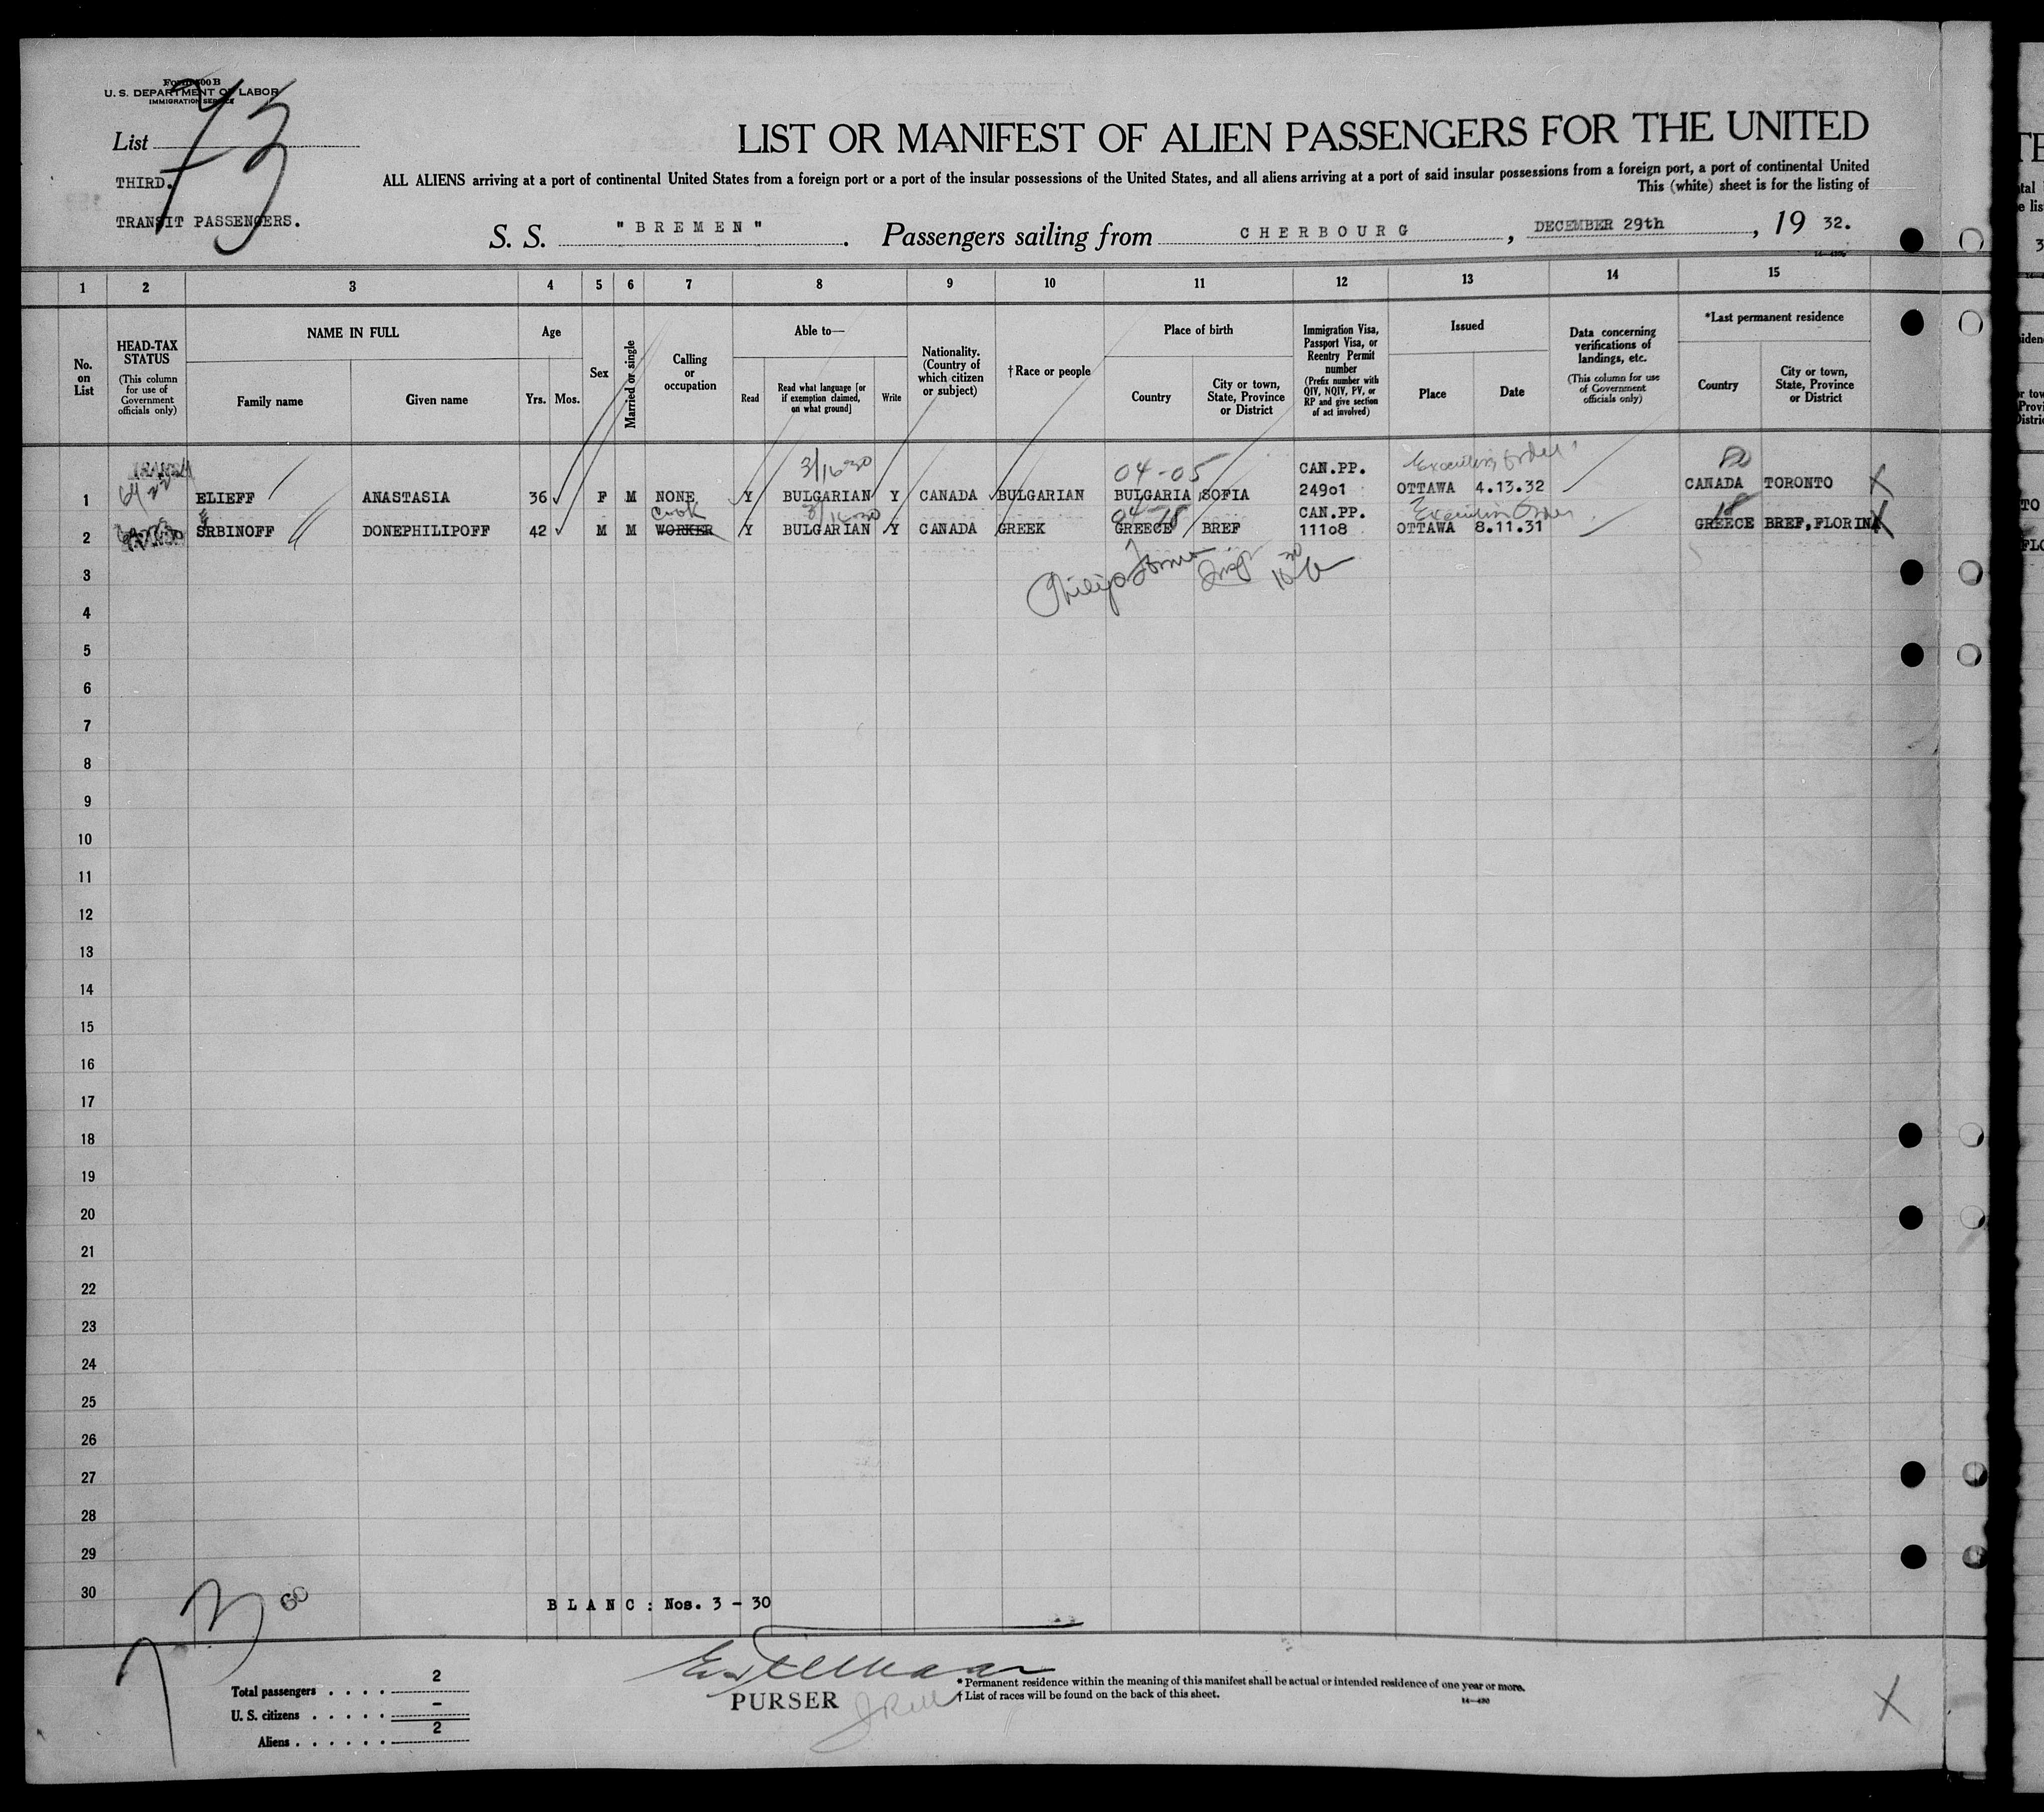 Form 500 B
U. S. DEPARTMENT OF LABOR
IMMIGRATION SERVICE
List 73
THIRD.
TRANSIT PASSENGERS.
LIST OR MANIFEST OF ALIEN PASSENGERS FOR THE UNITED
ALL ALIENS arriving at a port of continental United States from a foreign port or a port of the insular possessions of the United States, and all aliens arriving at a port of said insular possessions from a foreign port, a port of continental United
This (white) sheet is for the listing of
S. S. "BREMEN". Passengers sailing from CHERBOURG, DECEMBER 29th, 19 32.
1 2 3 4 5 6 7 8 9 10 11 12 13 14 15
No. on List
HEAD-TAX STATUS (This column for use of Government officials only)
NAME IN FULL
Family name
Given name
Age
Yrs. Mos.
Sex
Married or single
Calling or occupation
Able to—
Read
Read what language [or if exemption claimed, on what ground]
Write
Nationality. (Country of which citizen or subject)
†Race or people
Place of birth
Country
City or town, State, Province or District
Immigration Visa, Passport Visa, or Reentry Permit number (Prefix number with QIV, NQIV, PV, or RP and give section of act involved)
Issued
Place
Date
Data concerning verifications of landings, etc. (This column for use of Government officials only)
*Last permanent residence
Country
City or town, State, Province or District
3/16-30 04-05 CAN.PP. Executive Order
1 ELIEFF ANASTASIA 36 F M NONE Y BULGARIAN Y CANADA BULGARIAN BULGARIA SOFIA 249o1 OTTAWA 4.13.32 CANADA TORONTO X
Cook 3/16-30 CAN.PP. Executive Order 18
2 SRBINOFF DONEPHILIPOFF 42 M M WORKER Y BULGARIAN Y CANADA GREEK GREECE BREF 111o8 OTTAWA 8.11.31 GREECE BREF,FLORINA X
3
4
5
6
7
8
9
10
11
12
13
14
15
16
17
18
19
20
21
22
23
24
25
26
27
28
29
30
60
BLANC: Nos. 3 - 30
Total passengers . . . . 2
U. S. citizens . . . . . -
Aliens . . . . . . 2
PURSER
*Permanent residence within the meaning of this manifest shall be actual or intended residence of one year or more.
†List of races will be found on the back of this sheet.
14—430
X